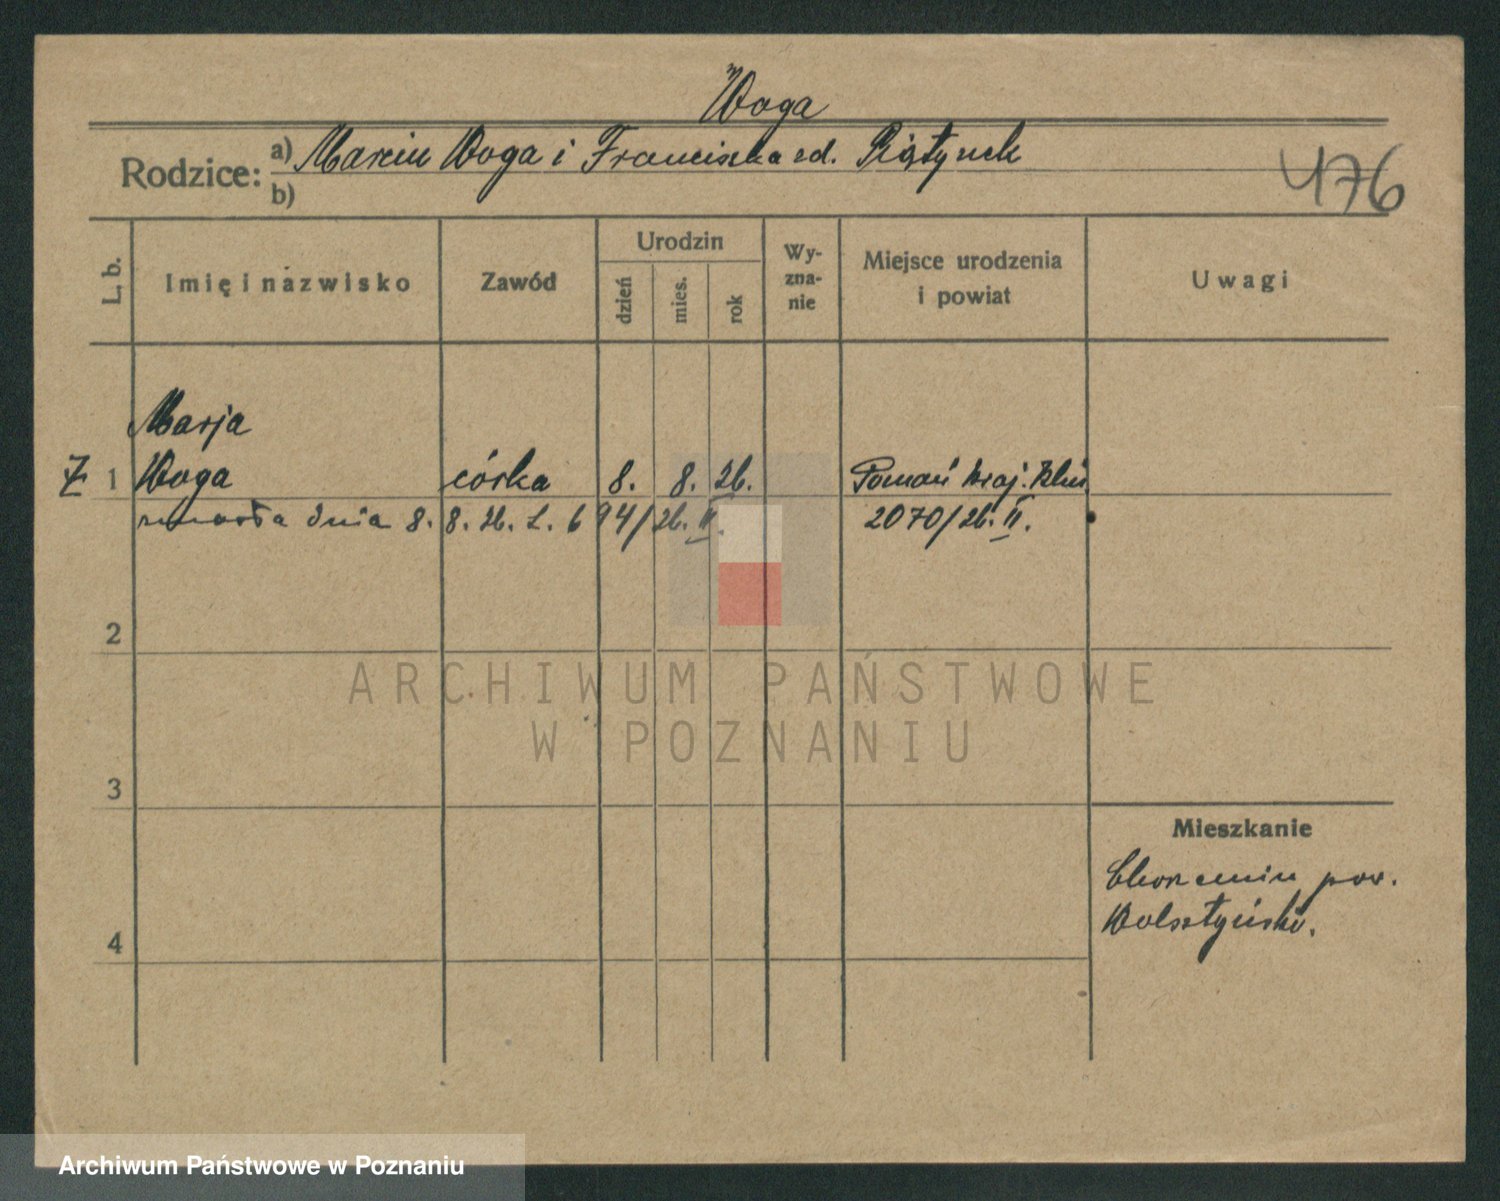 Woga
Rodzice: a) Marcin Woga i Franciszka zd. Piątynek
b)
476
L. b.
Imię i nazwisko
Zawód
Urodzin
dzień mies. rok
Wy-
zna-
nie
Miejsce urodzenia
i powiat
Uwagi
Marja
Z 1 Woga córka 8. 8. 26. Poznań kraj. Klin
zmarła dnia 8. 8. 26. L. 694/26. II. 2070/26. II.
2
3
4
Mieszkanie
Chorzemin pow.
Wolsztyński.
ARCHIWUM PAŃSTWOWE
W POZNANIU
Archiwum Państwowe w Poznaniu